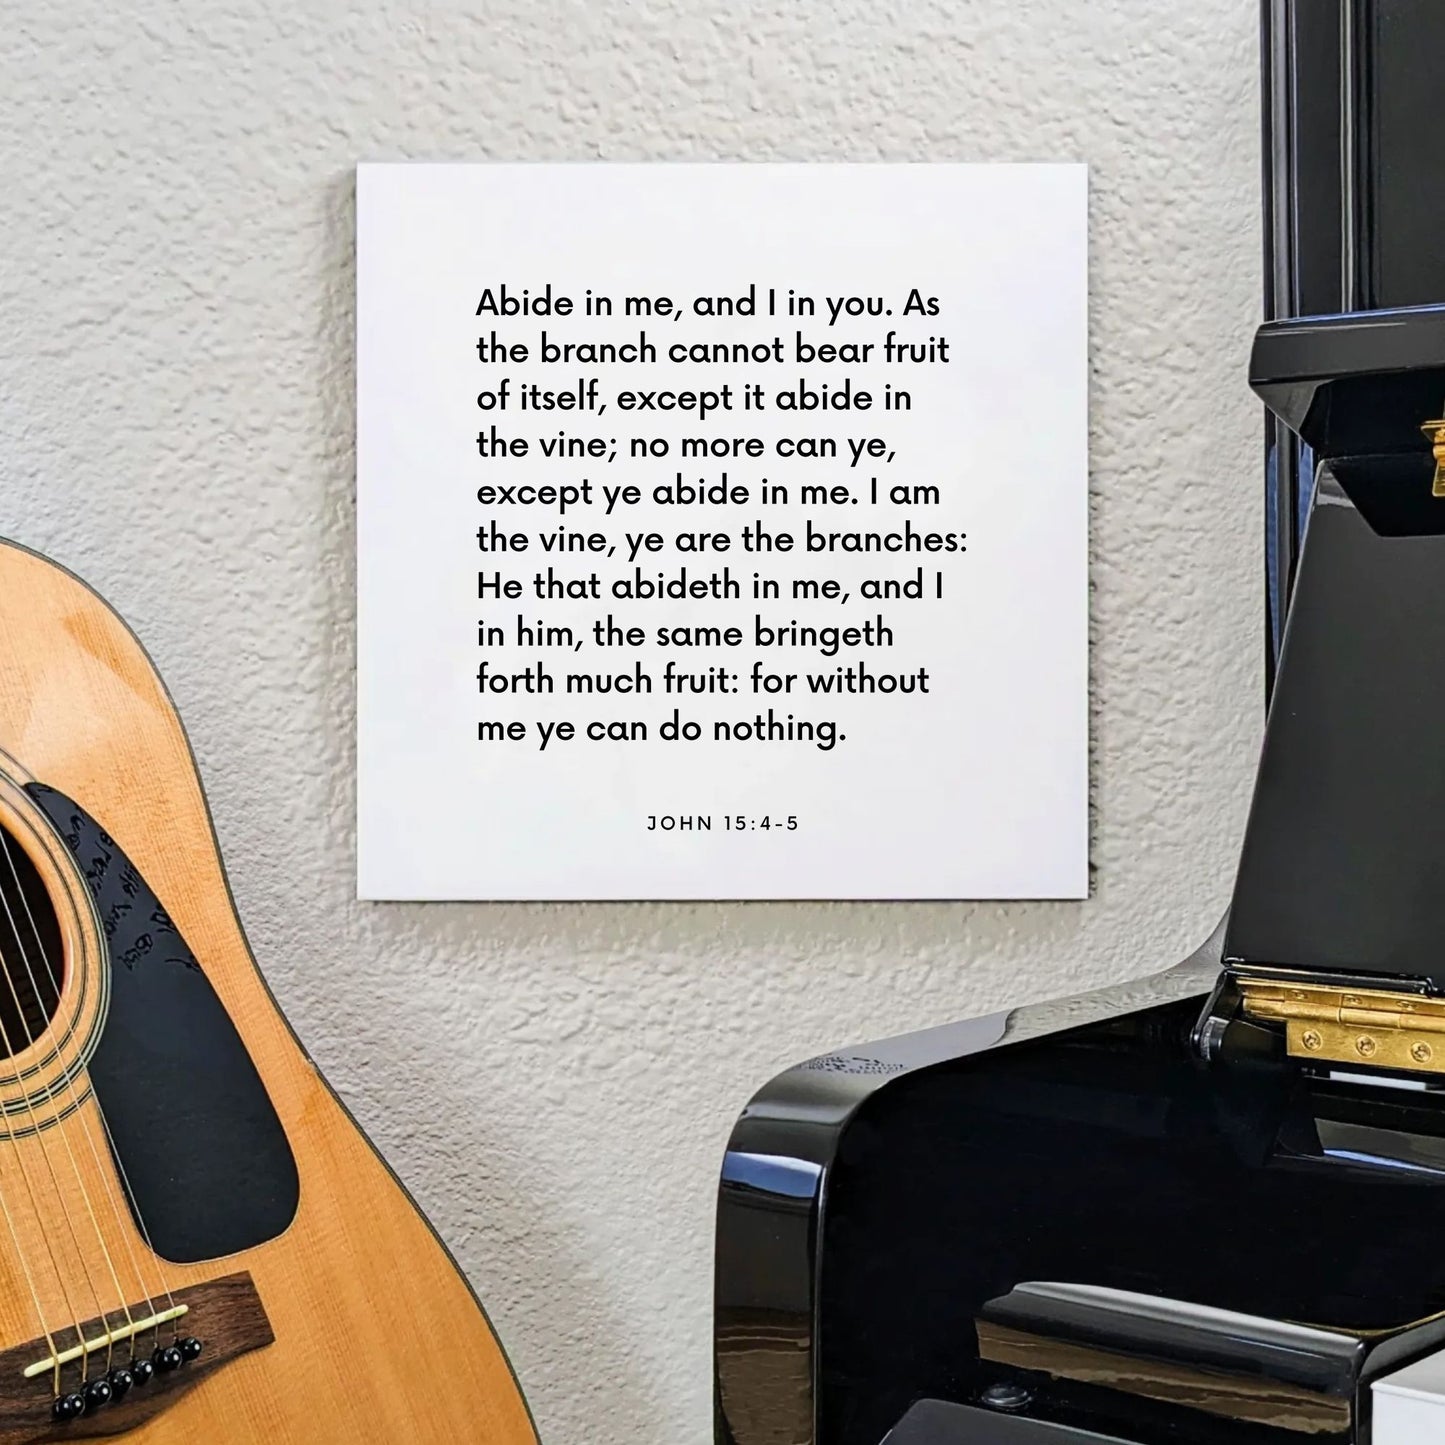 Abide in me, and I in you. As
the branch cannot bear fruit
of itself, except it abide in
the vine; no more can ye,
except ye abide in me. I am
the vine, ye are the branches:
He that abideth in me, and I
in him, the same bringeth
forth much fruit: for without
me ye can do nothing.
JOHN 15:4-5